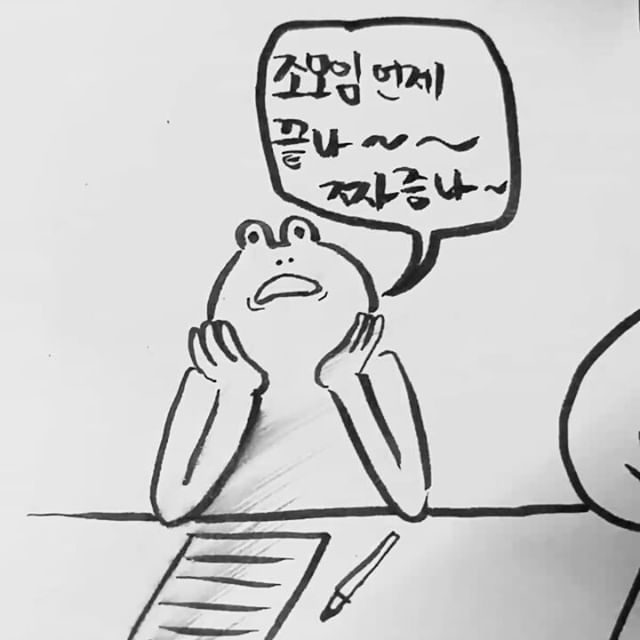 조모임 언제
끝나~~
짜증나~